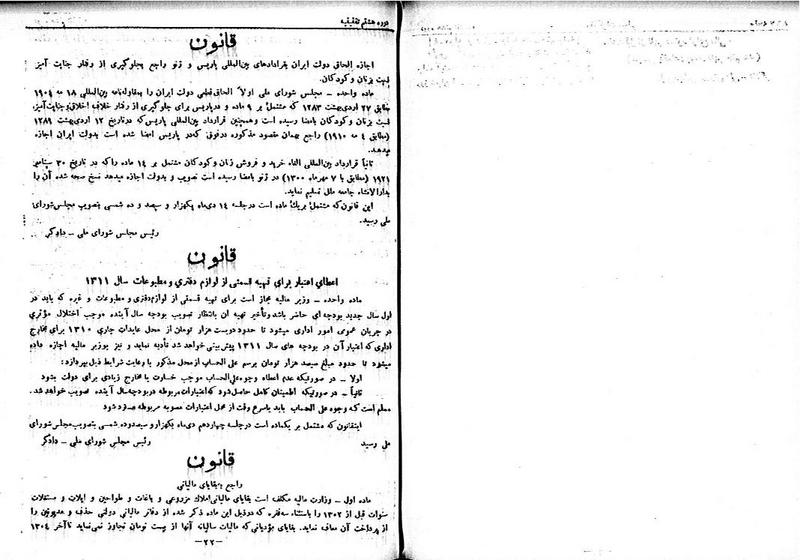 دوره هشتم تقنینیه
قانون
اجازه الحاق دولت ایران بقراردادهای بین‌المللی پاریس و ژنو راجع بجلوگیری از رفتار جنایت آمیز
نسبت بزنان و کودکان.
ماده واحده – مجلس شورای ملی اولاً الحاق قطعی دولت ایران را بمقاوله‌نامه بین‌المللی ۱۸ مه ۱۹۰۴
مطابق ۲۷ اردیبهشت ۱۲۸۳ که مشتمل بر ۹ ماده و در پاریس برای جلوگیری از رفتار خلاف اخلاق و جنایت‌آمیز
نسبت بزنان و کودکان بامضا رسیده است و همچنین قرارداد بین‌المللی پاریس که در تاریخ ۱۲ اردیبهشت ۱۲۸۹
(مطابق ۴ مه ۱۹۱۰) راجع بهمان مقصود مذکوره در فوق که در پاریس امضا شده است بدولت ایران اجازه
میدهد.
ثانیاً قرارداد بین‌المللی الغاء خرید و فروش زنان و کودکان مشتمل بر ۱۴ ماده را که در تاریخ ۳۰ سپتامبر
۱۹۲۱ (مطابق با ۷ مهرماه ۱۳۰۰) در ژنو بامضا رسیده است تصویب و بدولت اجازه میدهد نسخ صحه شده آن را
بدارالانشاء جامعه ملل تسلیم نماید.
این قانون که مشتمل بر یک ماده است در جلسه ۱۴ دی‌ماه یکهزار و سیصد و ده شمسی بتصویب مجلس شورای
ملی رسید.
رئیس مجلس شورای ملی – دادگر
قانون
اعطای اعتبار برای تهیه قسمتی از لوازم دفتری و مطبوعات سال ۱۳۱۱
ماده واحده – وزیر مالیه مجاز است برای تهیه قسمتی از لوازم دفتری و مطبوعات و غیره که باید در
اول سال جدید بودجه‌ای حاضر باشد و تأخیر تهیه آن بانتظار تصویب بودجه سال آینده موجب اختلال مؤثری
در جریان عمومی امور اداری میشود تا حدود دویست هزار تومان از محل عایدات جاری ۱۳۱۰ برای مخارج
اداری که اعتبار آن در بودجه های سال ۱۳۱۱ پیش بینی خواهد شد تأدیه نماید و نیز بوزیر مالیه اجازه داده
میشود تا حدود مبلغ سیصد هزار تومان برسم علی الحساب از محل مذکور با رعایت شرایط ذیل بپردازد:
اولاً – در صورتیکه عدم اعطاء وجوه علی‌الحساب موجب خسارت یا مخارج زیادی برای دولت بشود
ثانیاً – در صورتیکه اطمینان کامل حاصل شود که اعتبارات مربوطه در بودجه سال آینده تصویب خواهد شد.
مسلم است که وجوه علی الحساب باید باسرع وقت از محل اعتبارات مصوبه مربوطه مسترد شود
اینقانون که مشتمل بر یکماده است در جلسه چهاردهم دی‌ماه یکهزار و سیصد و ده شمسی بتصویب مجلس شورای
ملی رسید
رئیس مجلس شورای ملی – دادگر
قانون
راجع ببقایای مالیاتی
ماده اول – وزارت مالیه مکلف است بقایای مالیاتی املاک مزروعی و باغات و طواحین و ایلات و مستغلات
سنوات قبل از ۱۳۰۲ را باستثناء سه فقره که در ذیل این ماده ذکر شده از دفاتر مالیاتی دولتی حذف و مدیونین را
از پرداخت آن معاف نماید. بقایای مؤدیانی که مالیات سالیانه آنها از بیست تومان تجاوز نمی‌نماید تا آخر ۱۳۰۴
–۲۲–